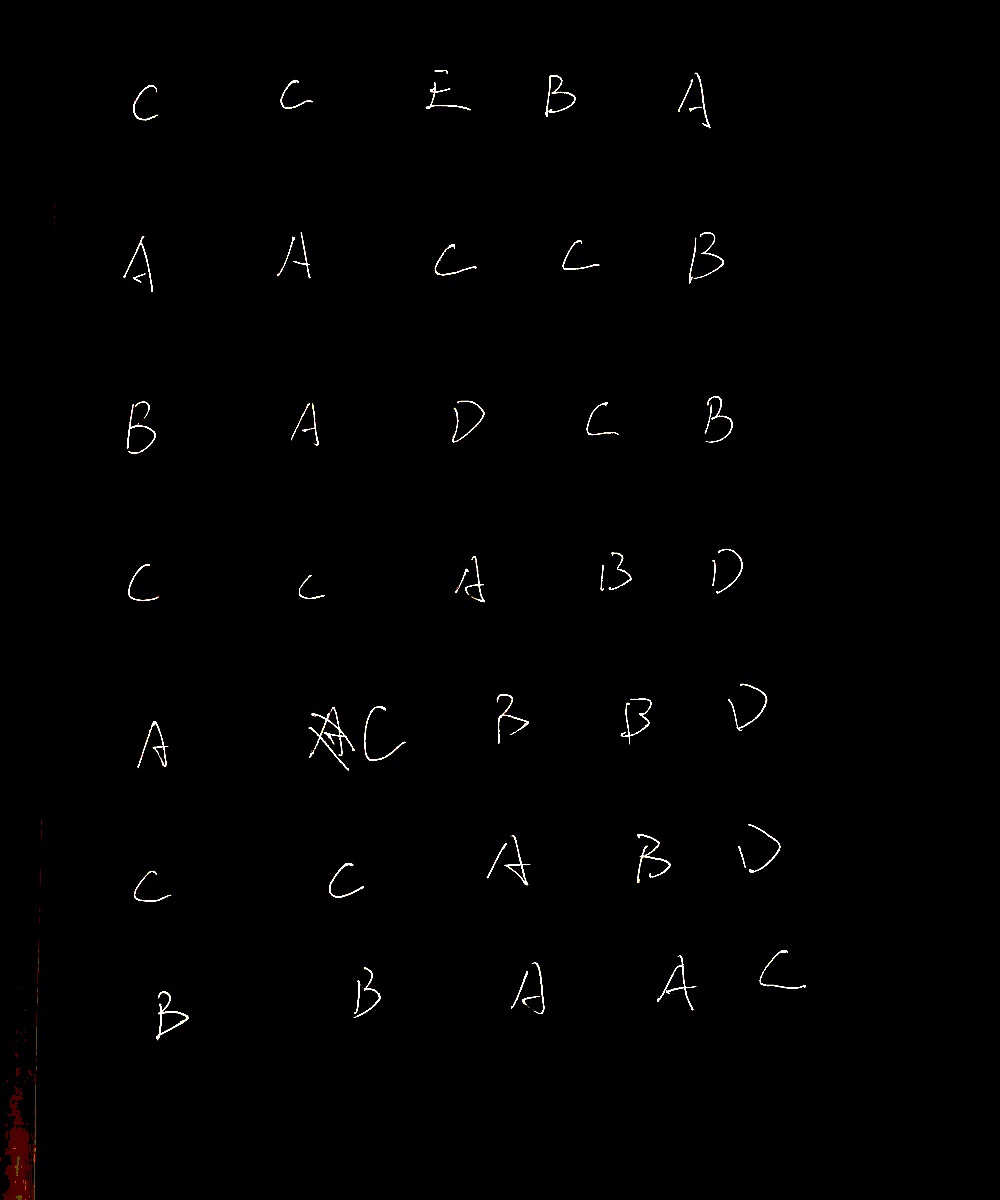 C C E B A
A A C C B
B A D C B
C C A B D
A C B B D
C C A B D
B B A A C